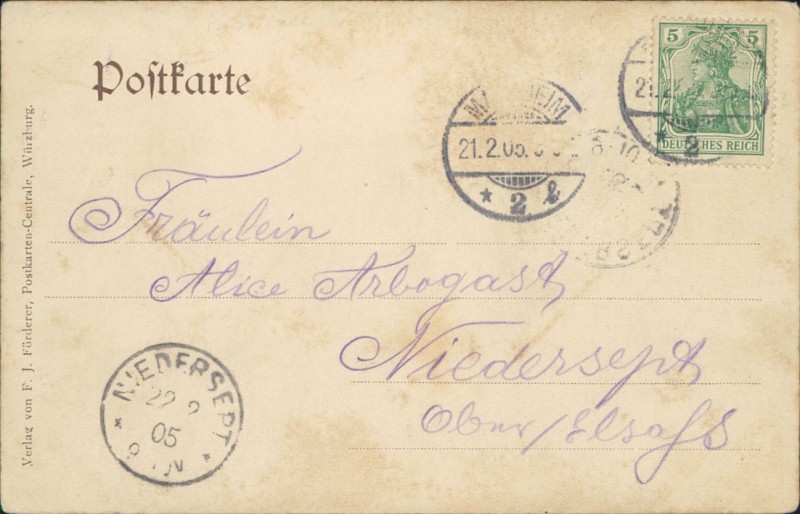 Postkarte
5 5
DEUTSCHES REICH
21.2.05.
* 2 ℓ
21.2
* 2
Fräulein
Alice Arbogast
Niedersept
Ober/Elsaß
NIEDERSEPT
22 2
05
Verlag von F. J. Förderer, Postkarten-Centrale, Würzburg.